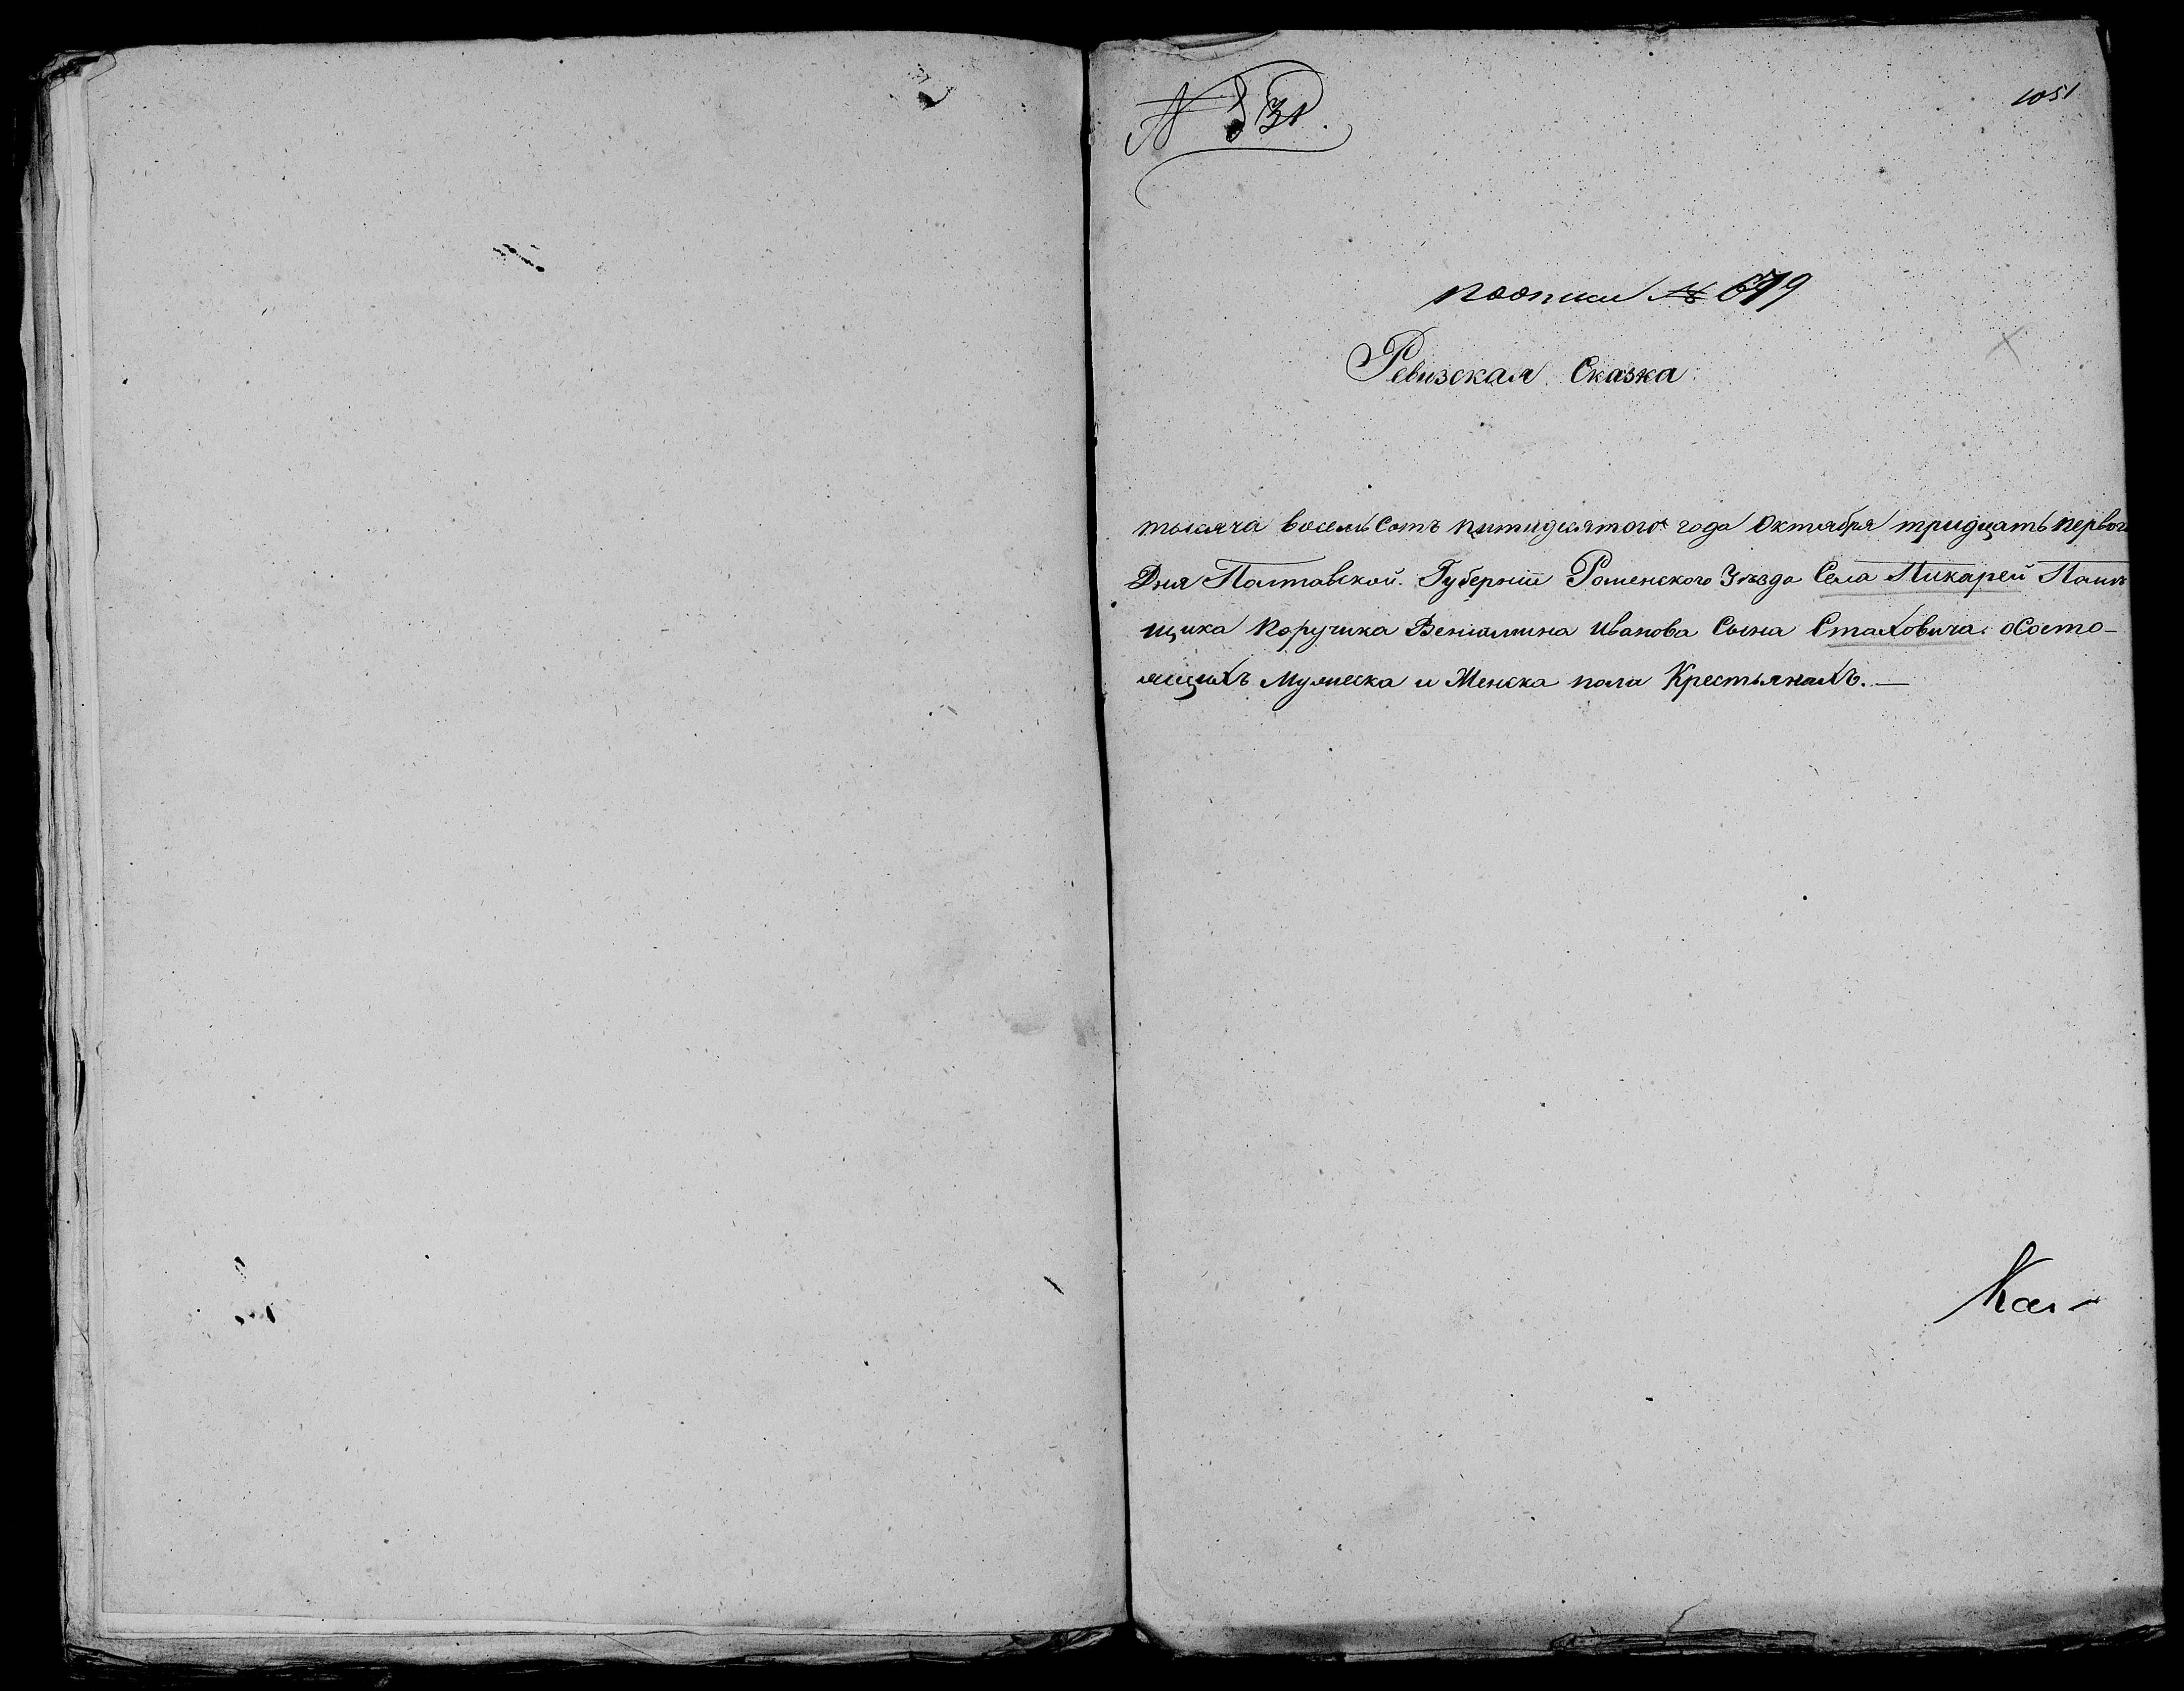 1051
по описи № 679
Ревизская Сказка
тысяча восемь Сотъ пятидесятого года Октября тридцать первого
Дня Полтавской Губернии Роменского Уезда Села Пикарей Помѣ
щика Поручика Вениамина Иванова Сына Стаховича. о Состо-
ящихъ Мужеска и Женска пола Крестьянахъ.—